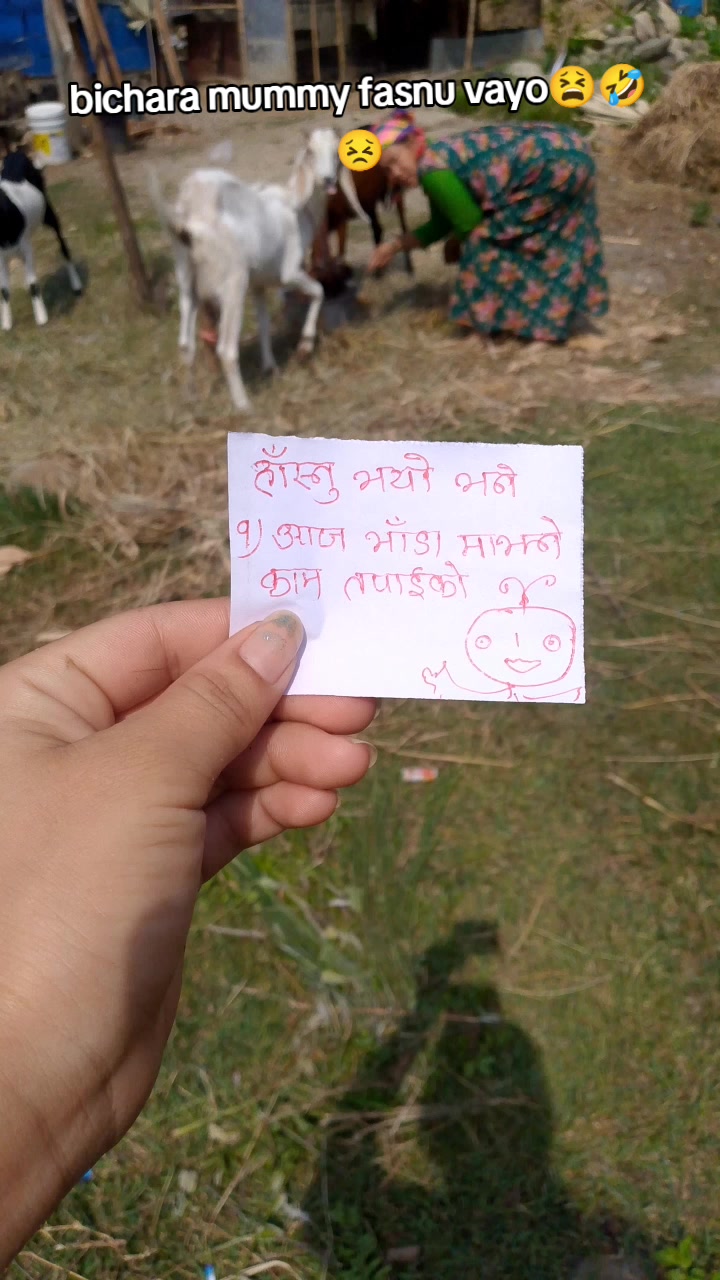 bichara mummy fasnu vayo😫🤣
😣
हाँस्नु भयो भने
१) आज भाँडा माझ्ने
काम तपाईको